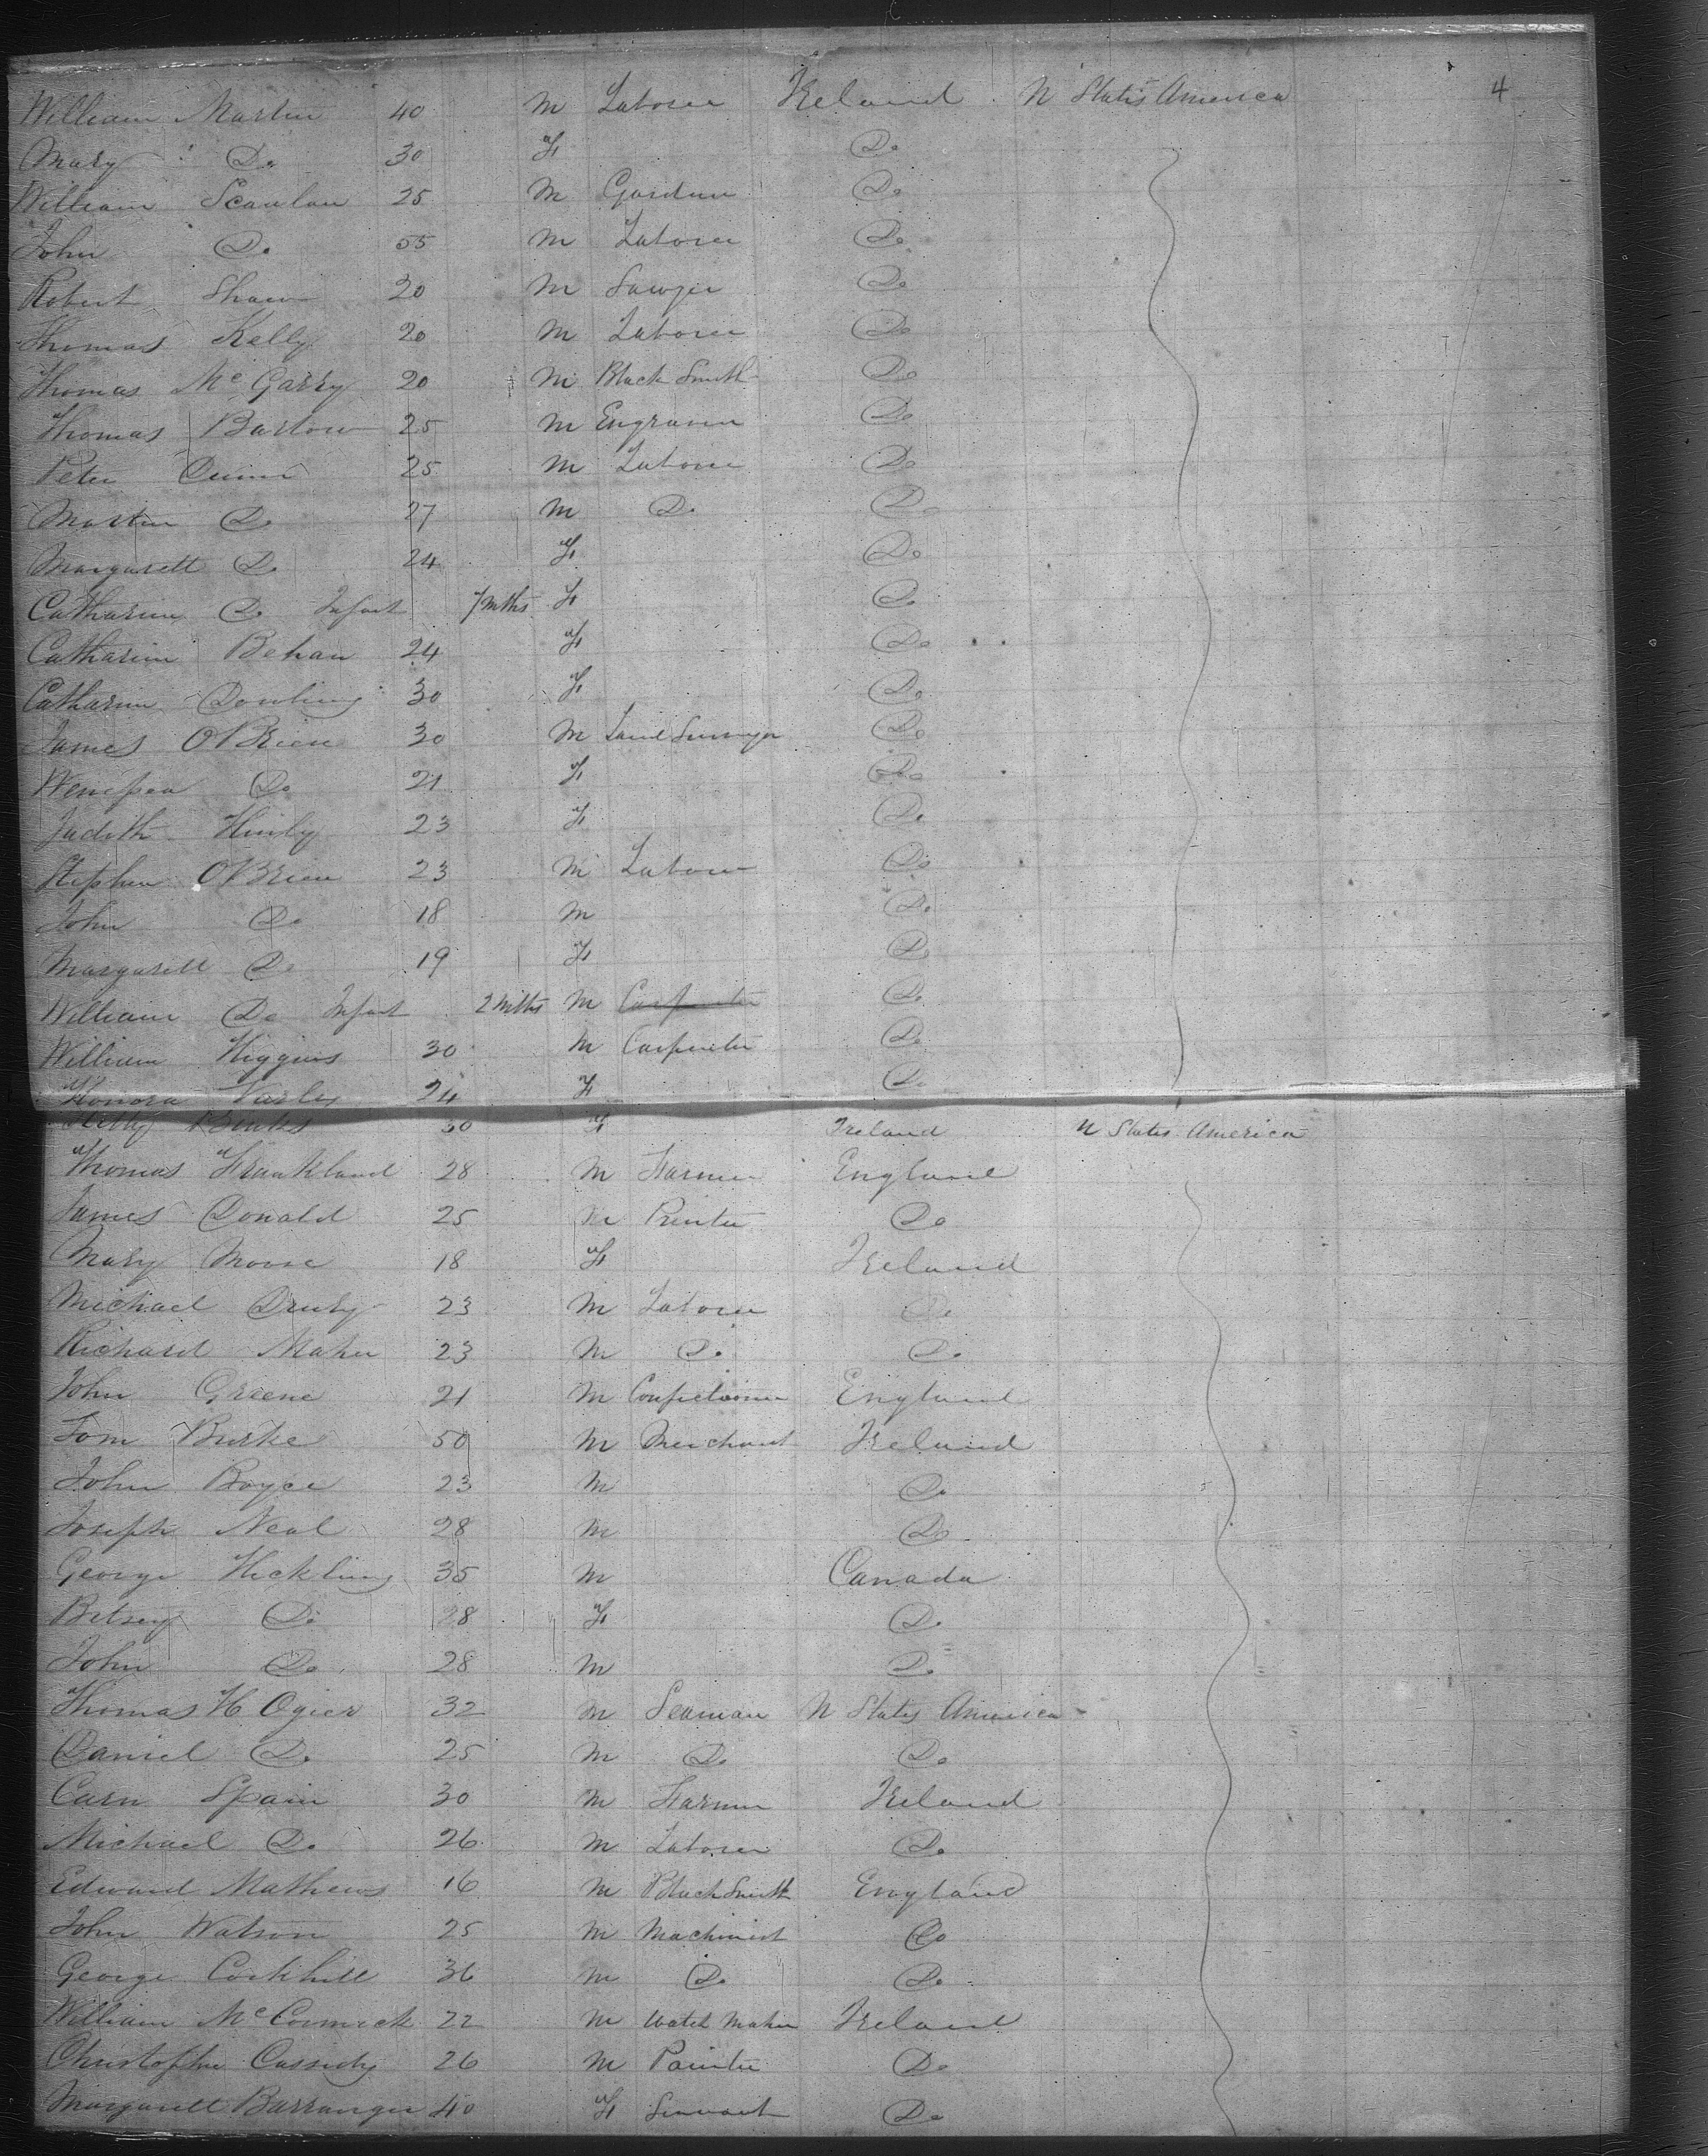 4
William Martin 40 M Laborer Ireland N States America
Mary Do 30 F Do
William Scanlan 25 M Gardner Do
John Do 55 M Laborer Do
Robert Shaw 20 M Sawyer Do
Thomas Kelly 20 M Laborer Do
Thomas McGarry 20 M Black Smith Do
Thomas Barlow 25 M Engraver Do
Peter Quinn 25 M Laborer Do
Martin Do 27 M Do Do
Margarett Do 24 F Do
Catharine Do Infant 7 mths F Do
Catharine Behan 24 F Do
Catharine Dowling 30 F Do
James OBrien 30 M Land Surveyor Do
Do 21 F Do
Judith 23 F Do
Stephen OBrien 23 M Laborer Do
John Do 18 M Do
Margarett Do 19 F Do
William Do Infant 2 mths M Carpenter Do
William Higgins 30 M Carpenter Do
Honora Varley 24 F Do
30 F Ireland N States America
Thomas Frankland 28 M Farmer England
James Donald 25 M Printer Do
Mary Moore 18 F Ireland
Michael Druty 23 M Laborer Do
Richard Maher 23 M Do Do
John Greene 21 M Confectioner England
Tom Burke 50 M Merchant Ireland
John Boyce 23 M Do
Joseph Neal 28 M Do
George Hickling 35 M Canada
Betsey Do 28 F Do
John Do 28 M Do
Thomas H Ogier 32 M Seaman N States America
Daniel Do 25 M Do Do
Carn Spain 30 M Farmer Ireland
Michael Do 26 M Laborer Do
Edward Mathews 16 M Black Smith England
John Watson 25 M Machinist Do
George Corkhill 36 M Do Do
William McCormick 22 M Watch Maker Ireland
Christopher Cassidy 26 M Painter Do
Margarett Barranger 40 F Servant Do